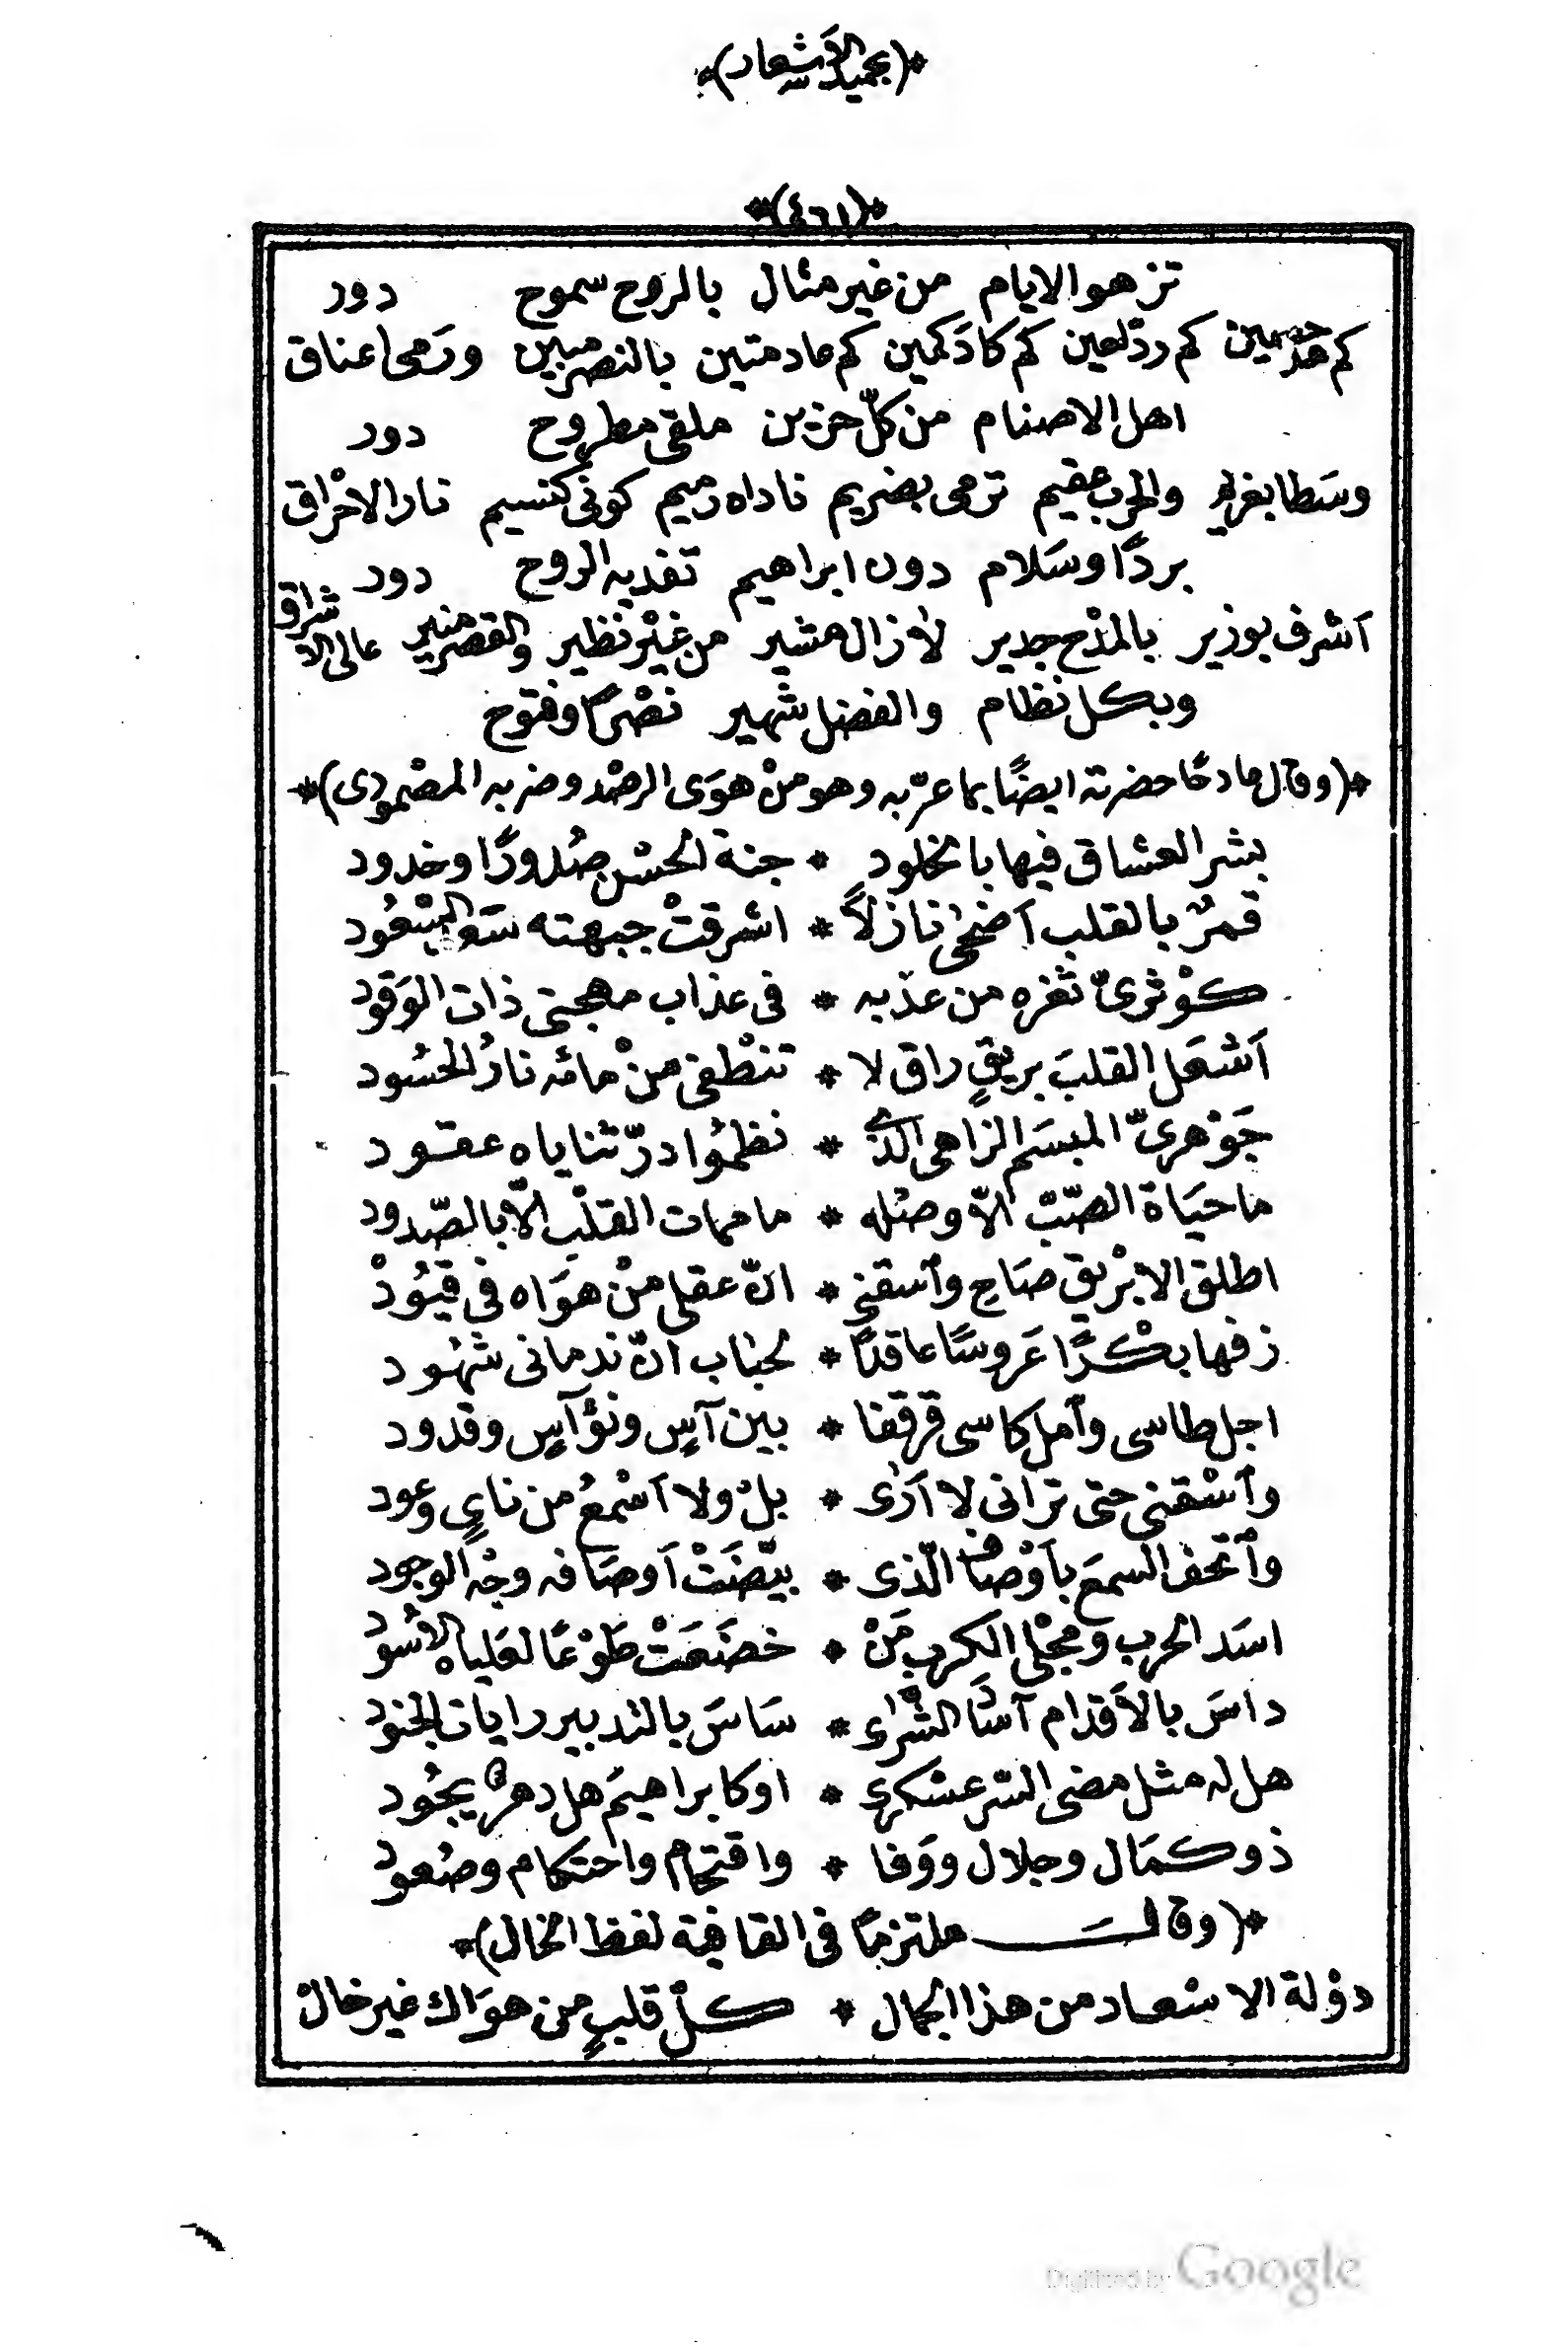 *(بحميد الأشعار)*
*(٤٦١)*
تزهو الايام من غير مثال بالروح سموح دور
كم هد حصين كم رد لعين كم كاد كمين كم عاد متين بالنصر مبين ورَمى اعناق
اهل الاصنام من كلّ حزين ملقى مطروح دور
وسَطا بغريم والحرب عقيم ترمى بضريم ناداه رَميم كونى كنسيم نار الاحْراق
بردًا وسَلام دون ابراهيم تفديه الروح دور
آشرف بوزير بالمدْح جدير لازال مشير من غيْر نظير والقصر منير عالى الاشراق
وبكل نظام والفضل شهير نصْرًا وفتوح
*(وقال مادحًا حضرته ايضًا بما عرّبه وهو منْ هوَى الرصْد وضربه المصْمودى)*
بشر العشاق فيها بالخلود * جنة الحسْن صُدورًا وخدود
قمرٌ بالقلب آضحٰى نازلاً * اشرقتْ جبهته سَعد السّعُود
كوْثرىّ ثغره من عذبه * فى عذاب مهجتى ذات الوَقود
آشعَل القلبَ بريقٍ راق لا * تنطْفى منْ مائه نارُ الحسُود
جَوْهرىّ المبسَم الزاهى الذى * نظمُوا درّ ثناياه عقود
ما حيَاة الصّبّ الاّ وصْله * ما ممات القلْب الاّ بالصّدود
اطلق الابْريق صَاحِ وآسقنى * انّ عقلى منْ هوَاه فى قيُودْ
زفها بكْرًا عَروسًا عاقدًا * لحباب انّ ندمانى شهُود
اجل طاسى وآمل كاسى قرقفا * بين آسٍ ونوٰآسٍ وقدود
وآسْقنى حتى ترانى لا آرٰى * بلْ ولا آسْمعُ من ناىٍ وعود
وآتحف السمعَ بآوْصاف الّذى * بيّضَتْ آوصَافه وجْه الوجود
اسَد الحرب ومجْلى الكرب مَنْ * خضَعَتْ طَوْعًا لعَلياه الاسُودْ
داسَ بالآقدام آسَادَ الشّرٰى * سَاسَ بالتدبير رايات الجنود
هل له مثل مضى السّر عسْكرى * اوكابراهيمَ هل دهرٌ يجُود
ذو كمَال وجلال ووَفا * واقتحام واحتكام وصُعود
*(وقالَ ملتزمًا فى القافية لفظ الخال)*
دوْلة الاسْعاد من هذا الجمال * كلّ قلبٍ من هوَاك غير خالْ
Digitized by Google